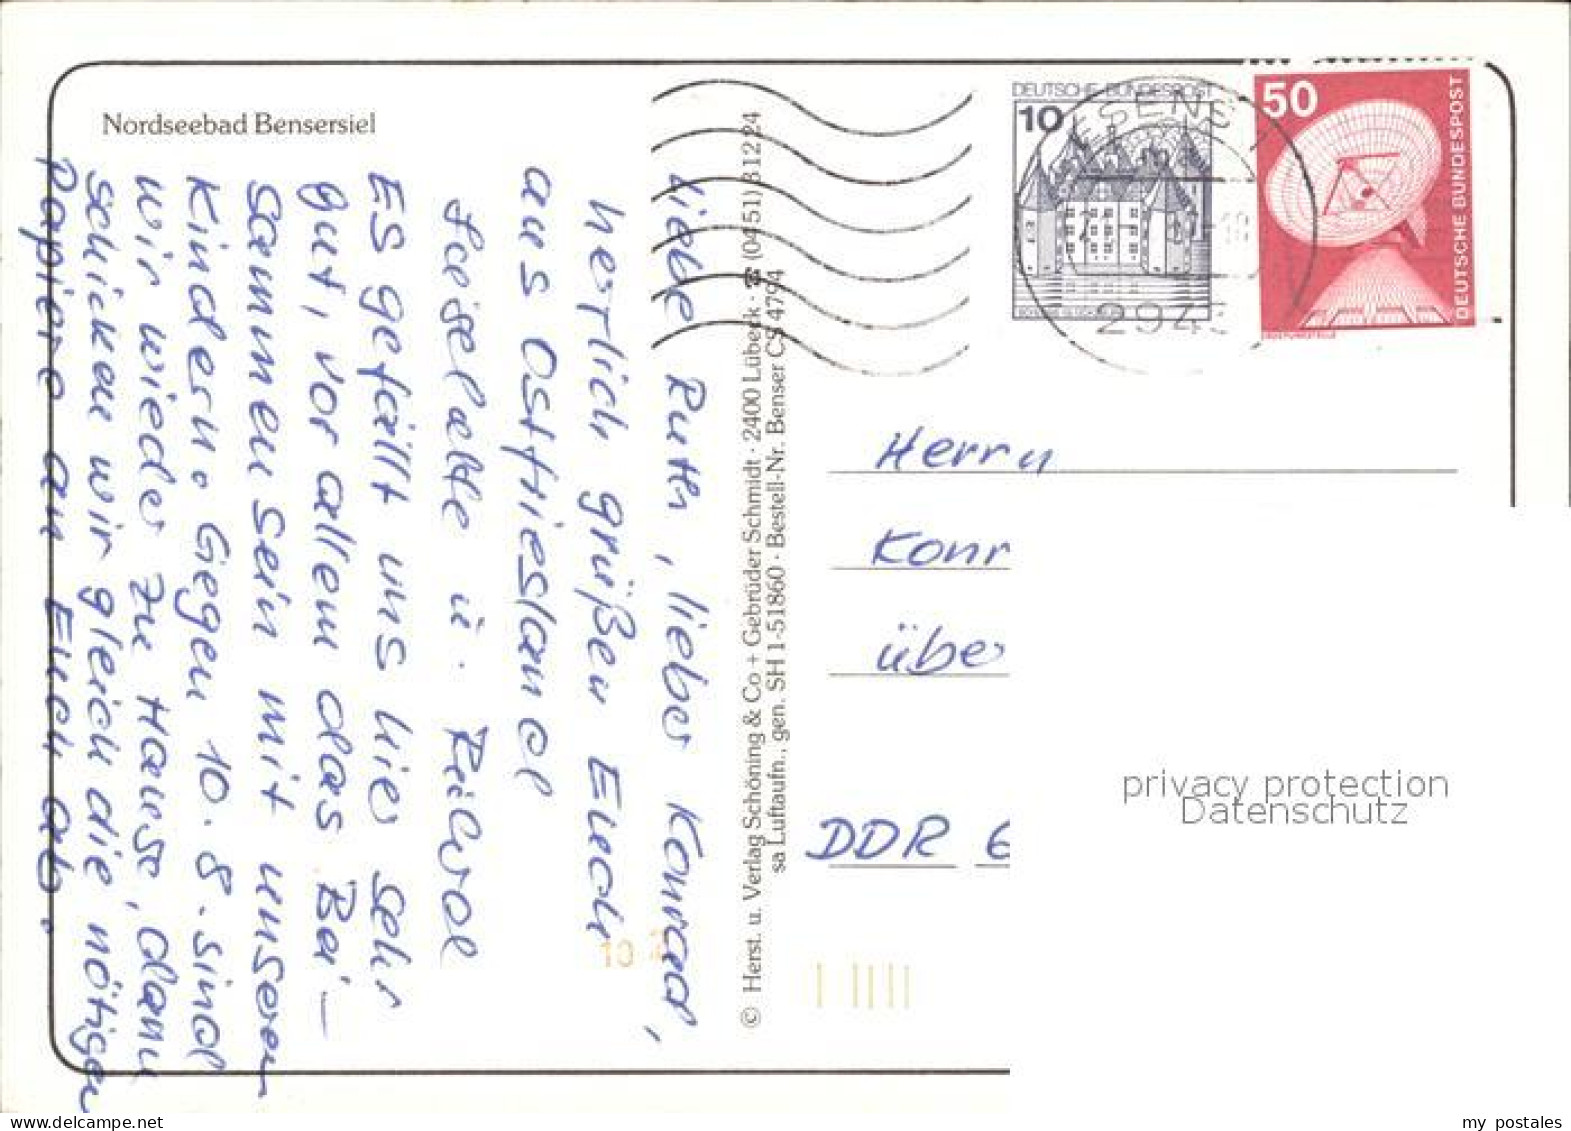 Nordseebad Bensersiel
Liebe Ruth, lieber Konrad,
herzlich grüßen Euch
aus Ostfriesland
Lieselotte u.
ES gefällt uns hier sehr
gut, vor allem das Bei-
sammensein mit unseren
Kindern. Gegen 10.8. sind
wir wieder zu Hause, dann
schicken wir gleich die nötigen
Papiere an Euch ab.
© Herst. u. Verlag Schöning & Co + Gebrüder Schmidt · 2400 Lübeck · ☎ (0451) 31224
sa Luftaufn., gen. SH 1-51860 · Bestell-Nr. Benser CS 4794
DEUTSCHE BUNDESPOST
10
50
DEUTSCHE BUNDESPOST
ESENS
294
Herrn
Konr
über
DDR 6
10
privacy protection
Datenschutz
my_postales